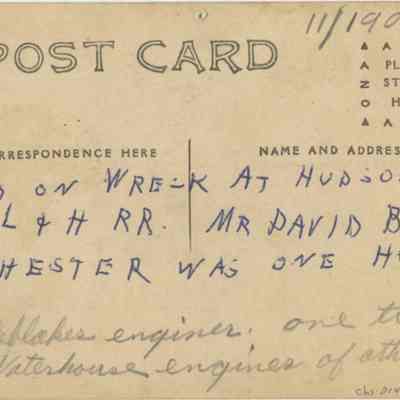 11/190
POST CARD
A
PL
ST
H
A
ANO
RRESPONDENCE HERE
NAME AND ADDRES
ON WRECK AT HUDSO
L & H RR. MR DAVID B
HESTER WAS ONE H
blakes enginer. one t
Waterhouse engines of oth
Chs Div